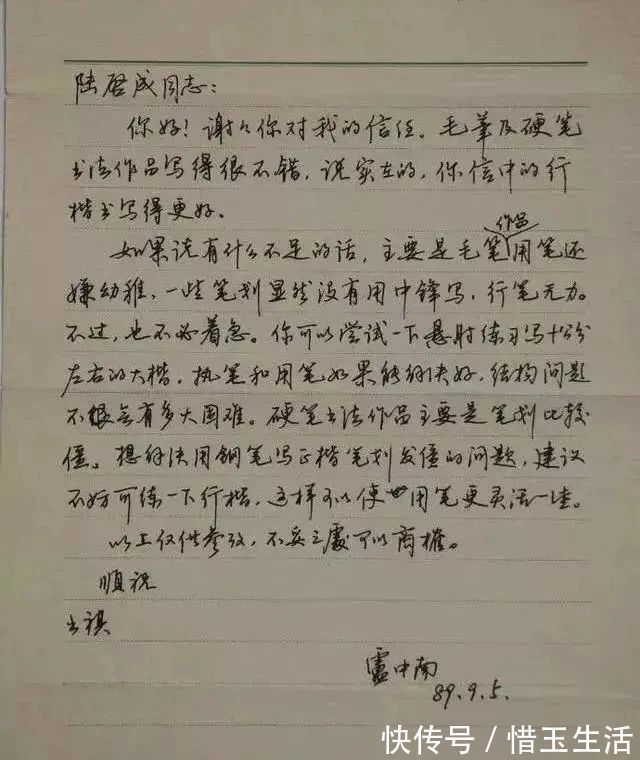 陆启成同志：
你好！谢谢你对我的信任。毛筆及硬笔
书法作品写得很不错，说实在的，你信中的行
楷书写得更好。
如果说有什么不足的话，主要是毛笔作品用笔还
嫌幼稚，一些笔划显然没有用中锋写，行笔无力。
不过，也不必着急。你可以尝试一下悬肘练习写十公分
左右的大楷，执笔和用笔如果能解决好，结构问题
不会有多大困难。硬笔书法作品主要是笔划比较
僵。想解决用钢笔写正楷笔划发僵的问题，建议
不妨可练一下行楷，这样可以使用笔更灵活一些。
以上仅供参考，不妥之處可以商榷。
顺祝
书祺
盧中南
89.9.5.
快传号/惜玉生活